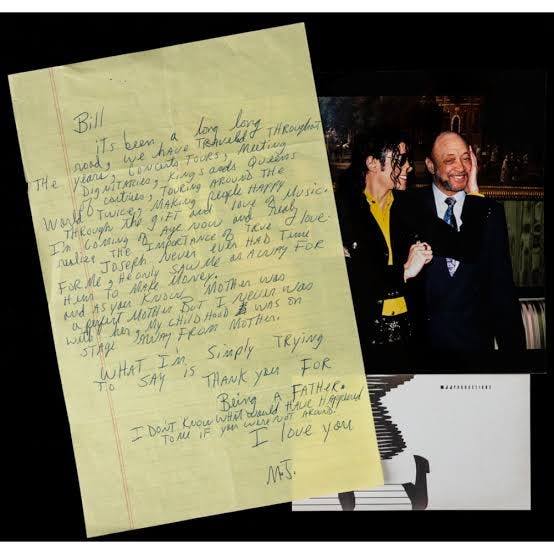 Bill
its been a long long
road, we have TRAVELED THROUGHOUT
THE years, Concerts TOURS, Meeting
DIGNITARIES, KINGS ands Queens
of contries, TOURING AROUND THE
World TWICE, MAKING People HAPPY
THROUGH THE GIFT and love of Music.
I'm Coming of Age now and really
realize THE IMPORTANCE OF True love.
JOSEPH Never even HAD Time
FOR Me, He only SAW Me as A WAY FOR
Him TO MAKE Money.
and AS you Know MOTHER WAS
a perfect MOTHER But I never WAS
with her, My CHILDHOOD WAS ON
STAGE AWAY FROM MOTHER.
WHAT I'm Simply TRYING
TO SAY is THANK you FOR
Being A FATHER.
I DON'T Know WHAT would HAVE HAppened
To me if you were NOT Around.
I love you
M.J.
MJJPRODUCTIONS